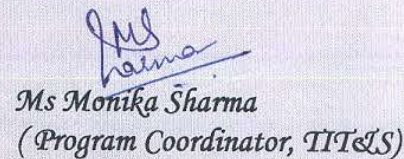 MS
Sharma
Ms Monika Sharma
( Program Coordinator, TIT&S)